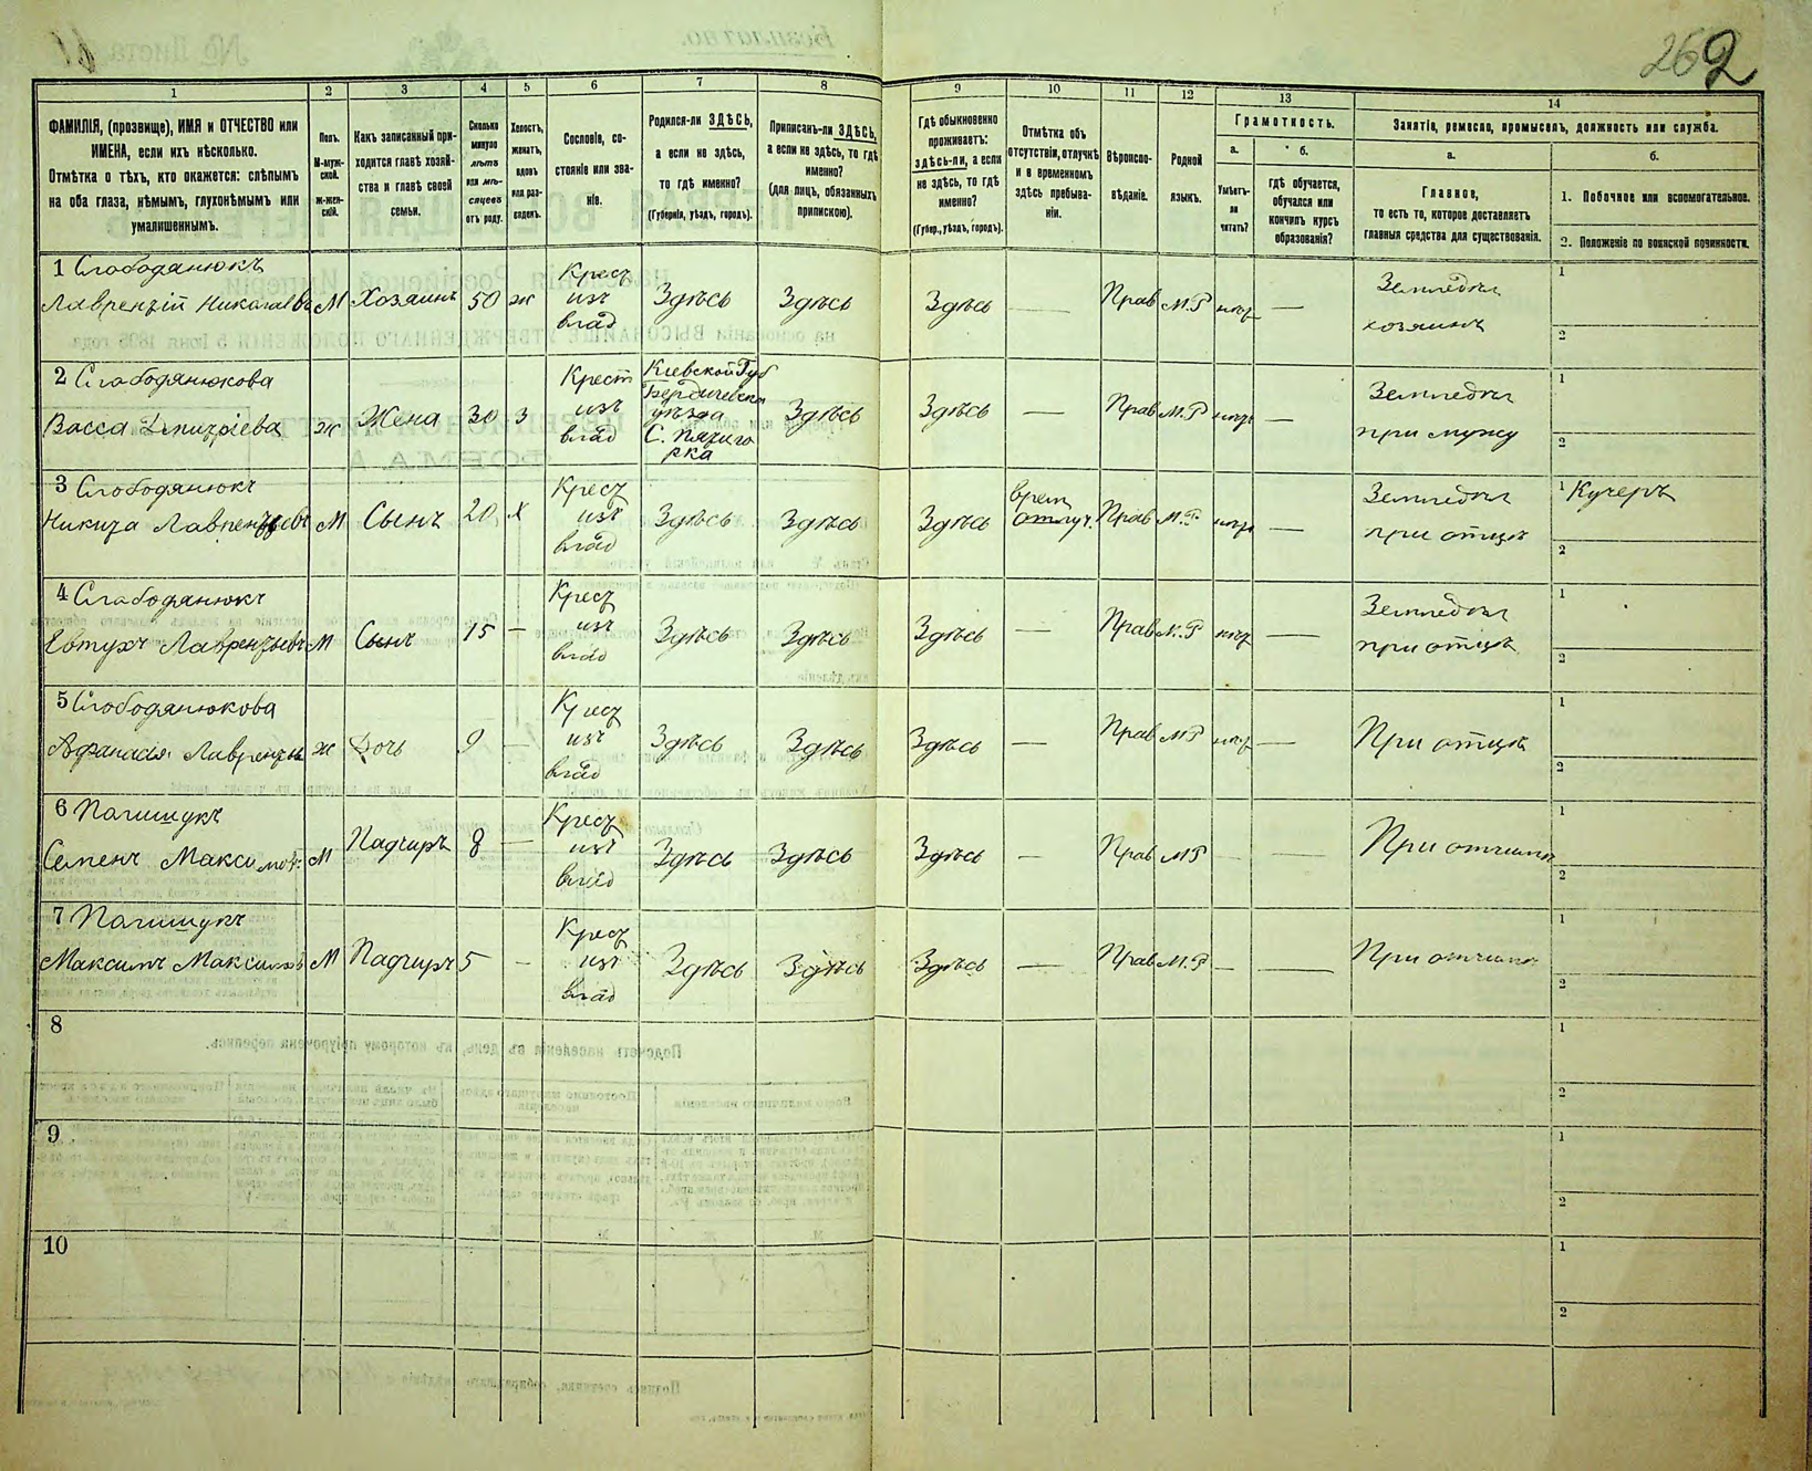 262
1 2 3 4 5 6 7 8 9 10 11 12 13 14
ФАМИЛІЯ, (прозвище), ИМЯ и ОТЧЕСТВО или
ИМЕНА, если ихъ нѣсколько.
Отмѣтка о тѣхъ, кто окажется: слѣпымъ
на оба глаза, нѣмымъ, глухонѣмымъ или
умалишеннымъ.
Полъ.
М-муж-
ской.
Ж-жен-
скій.
Какъ записанный при-
ходится главѣ хозяй-
ства и главѣ своей
семьи.
Сколько
минуло
лѣтъ
или мѣ-
сяцевъ
отъ роду.
Холостъ,
женатъ,
вдовъ
или раз-
веденъ.
Сословіе, со-
стояніе или зва-
ніе.
Родился-ли ЗДѢСЬ,
а если не здѣсь,
то гдѣ именно?
(Губернія, уѣздъ, городъ).
Приписанъ-ли ЗДѢСЬ,
а если не здѣсь, то гдѣ
именно?
(для лицъ, обязанныхъ
припискою).
Гдѣ обыкновенно
проживаетъ:
здѣсь-ли, а если
не здѣсь, то гдѣ
именно?
(Губер., уѣздъ, городъ).
Отмѣтка объ
отсутствіи, отлучкѣ
и о временномъ
здѣсь пребыва-
ніи.
Вѣроиспо-
вѣданіе.
Родной
языкъ.
Грамотность.
а.
Умѣетъ-
ли
читать?
б.
гдѣ обучается,
обучался или
кончилъ курсъ
образованія?
Занятіе, ремесло, промыселъ, должность или служба.
а.
Главное,
то есть то, которое доставляетъ
главныя средства для существованія.
б.
1. Побочное или вспомогательное.
2. Положеніе по воинской повинности.
1 Слободянюкъ
Лаврентій Николаевъ М Хозяинъ 50 ж Крест изъ влад Здѣсь Здѣсь Здѣсь — Прав М.Р нѣт — Земледѣл хозяинъ
1
2
2 Слободянюкова
Васса Дмитріева ж Жена 30 з Крест изъ влад Кіевской Губ Бердичевск уѣзда С. Пятиго рка Здѣсь Здѣсь — Прав М.Р нѣт — Земледѣл при мужу
1
2
3 Слободянюкъ
Никита Лаврентьевъ М Сынъ 20 х Крест изъ влад Здѣсь Здѣсь Здѣсь врем отлуч. Прав М.Р. нѣт — Земледѣл при отцѣ
1 Кучеръ
2
4 Слободянюкъ
Евтухъ Лаврентьевъ М Сынъ 15 — Крест изъ влад Здѣсь Здѣсь Здѣсь — Прав М.Р нѣт — Земледѣл при отцѣ
1
2
5 Слободянюкова
Афанасія Лаврентьев ж Дочь 9 — Крест изъ влад Здѣсь Здѣсь Здѣсь — Прав МР нѣт — При отцѣ
1
2
6 Полищукъ
Семенъ Максимов: М Падчиръ 8 — Крест изъ влад Здѣсь Здѣсь Здѣсь — Прав МР — — При отчимѣ
1
2
7 Полищукъ
Максимъ Максимовъ М Падчиръ 5 — Крест изъ влад Здѣсь Здѣсь Здѣсь — Прав М.Р — — При отчимѣ
1
2
8
1
2
9
1
2
10
1
2